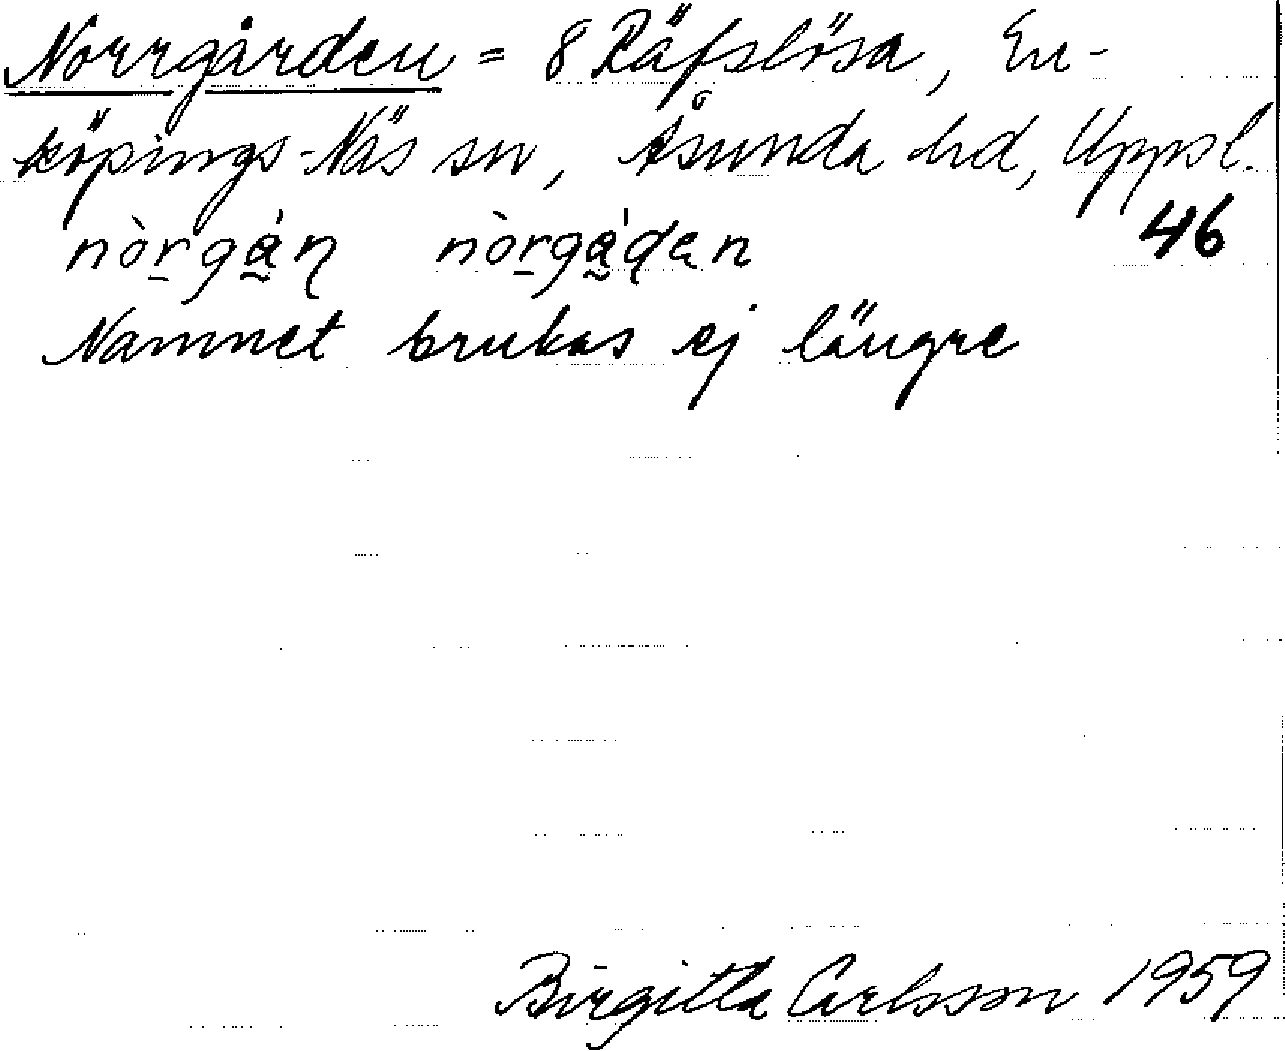 Norrgården = 8 Räfslösa, En-
köpings-Näs sn, Åsunda hd, Uppl.
46
Namnet brukas ej längre
Birgitta Carlsson 1959